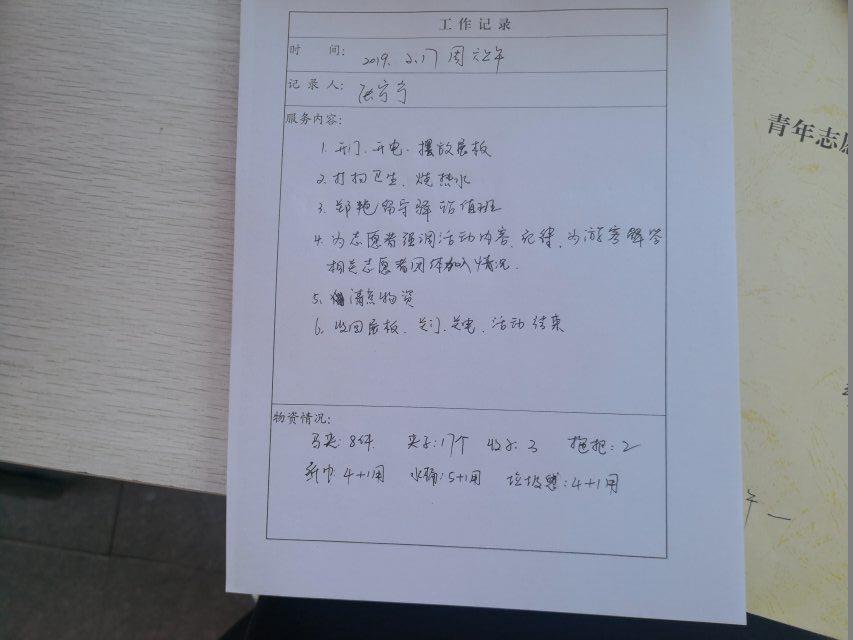 工作记录
时 间: 2019. 2.17 周六上午
记 录 人: 张宁宁
服务内容:
1. 开门、开电、摆放展板
2. 打扫卫生、烧热水
3. 郑艳留守驿站值班
4. 为志愿者强调活动内容、纪律,为游客解答
相关志愿者团体加入情况.
5. 清点物资
6. 收回展板、关门、关电、活动结束
物资情况:
马夹: 8件 夹子: 17个 3 拖把: 2
纸巾: 4+1用 水桶: 5+1用 垃圾袋: 4+1用
青年志愿
午一